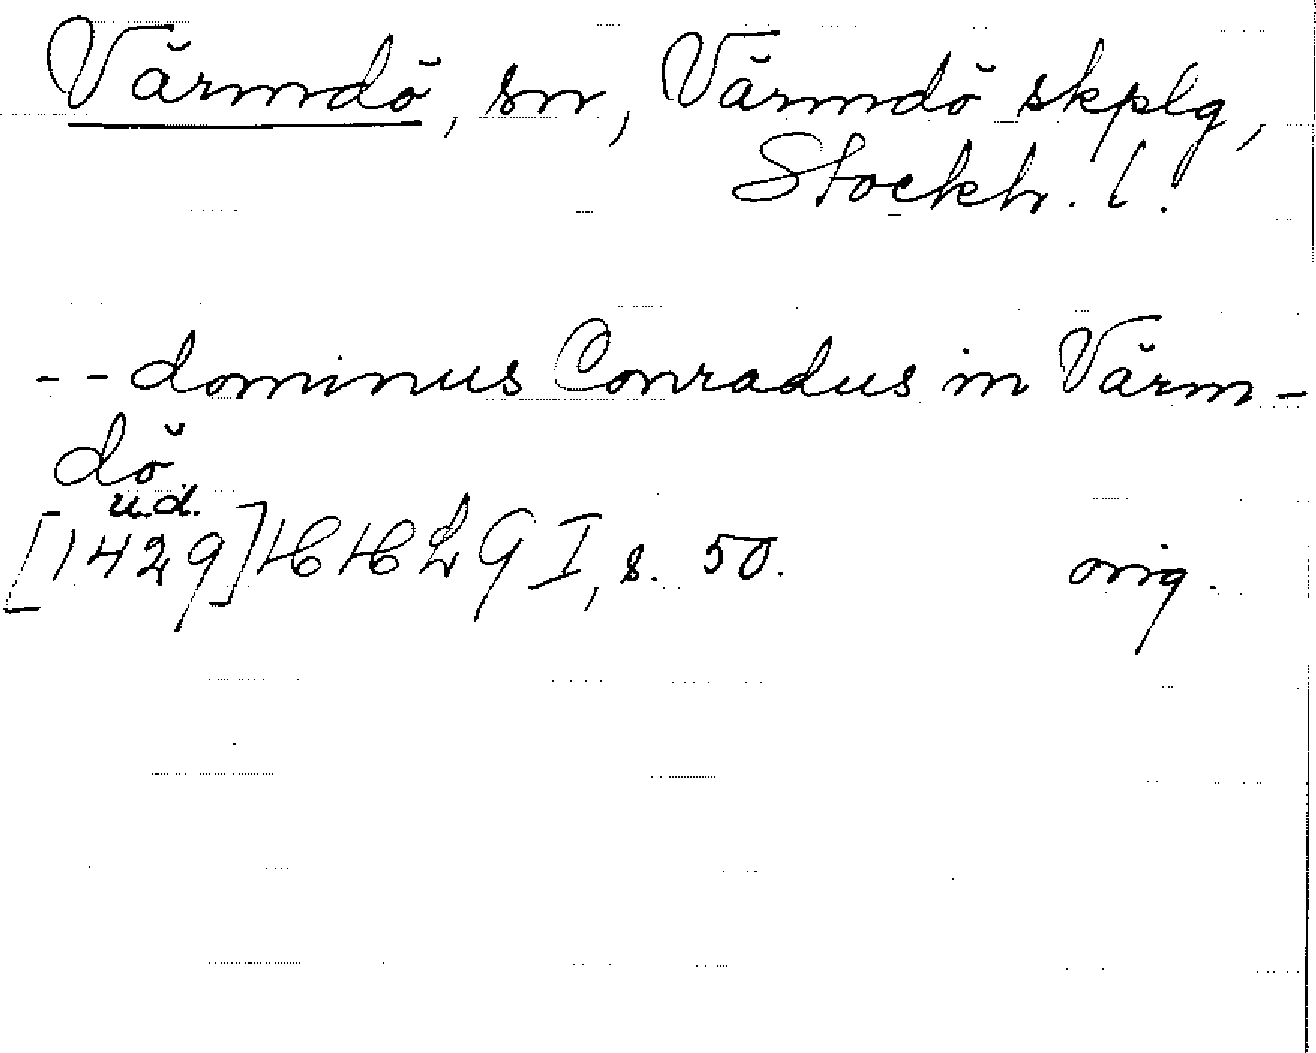 Värmdö, sn, Värmdö skplg,
Stockh. l.
-- dominus Conradus in Värm-
dö
u.d.
[1429] HHLG I, s. 50. orig.